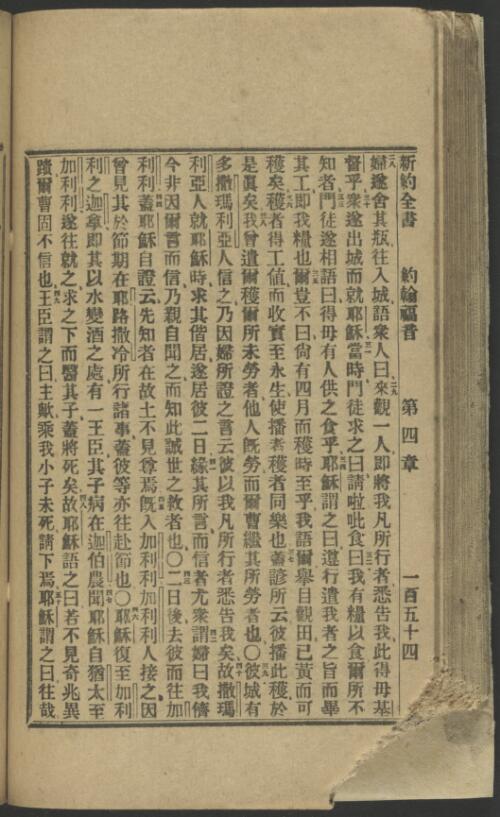 新約全書　約翰福音　第四章　一百五十四
婦遂舍其瓶往入城語衆人曰來觀一人即將我凡所行者悉告我此得毋基
督乎衆遂出城而就耶穌當時門徒求之曰請啦吡食曰我有糧以食爾所不
知者門徒遂相語曰得毋有人供之食乎耶穌謂之曰遵行遣我者之旨而畢
其工即我糧也爾豈不曰尙有四月而穫時至乎我語爾擧目觀田已黃而可
穫矣穫者得工値而收實至永生使播者穫者同樂也蓋諺所云彼播此穫於
是眞矣我曾遣爾穫爾所未勞者他人旣勞而爾曹繼其所勞者也〇彼城有
多撒瑪利亞人信之乃因婦所證之言云彼以我凡所行者悉告我矣故撒瑪
利亞人就耶穌時求其偕居遂居彼二日緣其所言而信者尤衆謂婦曰我儕
今非因爾言而信乃親自聞之而知此誠世之救者也〇二日後去彼而往加
利利蓋耶穌自證云先知者在故土不見尊焉旣入加利利加利利人接之因
曾見其於節期在耶路撒冷所行諸事蓋彼等亦往赴節也〇耶穌復至加利
利之迦拿即其以水變酒之處有一王臣其子病在迦伯農聞耶穌自猶太至
加利利遂往就之求之下而醫其子蓋將死矣故耶穌語之曰若不見奇兆異
蹟爾曹固不信也王臣謂之曰主歟乘我小子未死請下焉耶穌謂之曰往哉